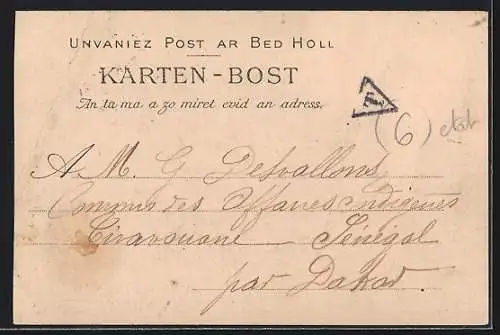 UNVANIEZ POST AR BED HOLL
KARTEN-BOST
An ta ma a zo miret evid an adress.
T
(6) etat
A M. G Desvallons
Commis des Affaires Indigènes
Tivavouane - Sénégal
par Dakar.